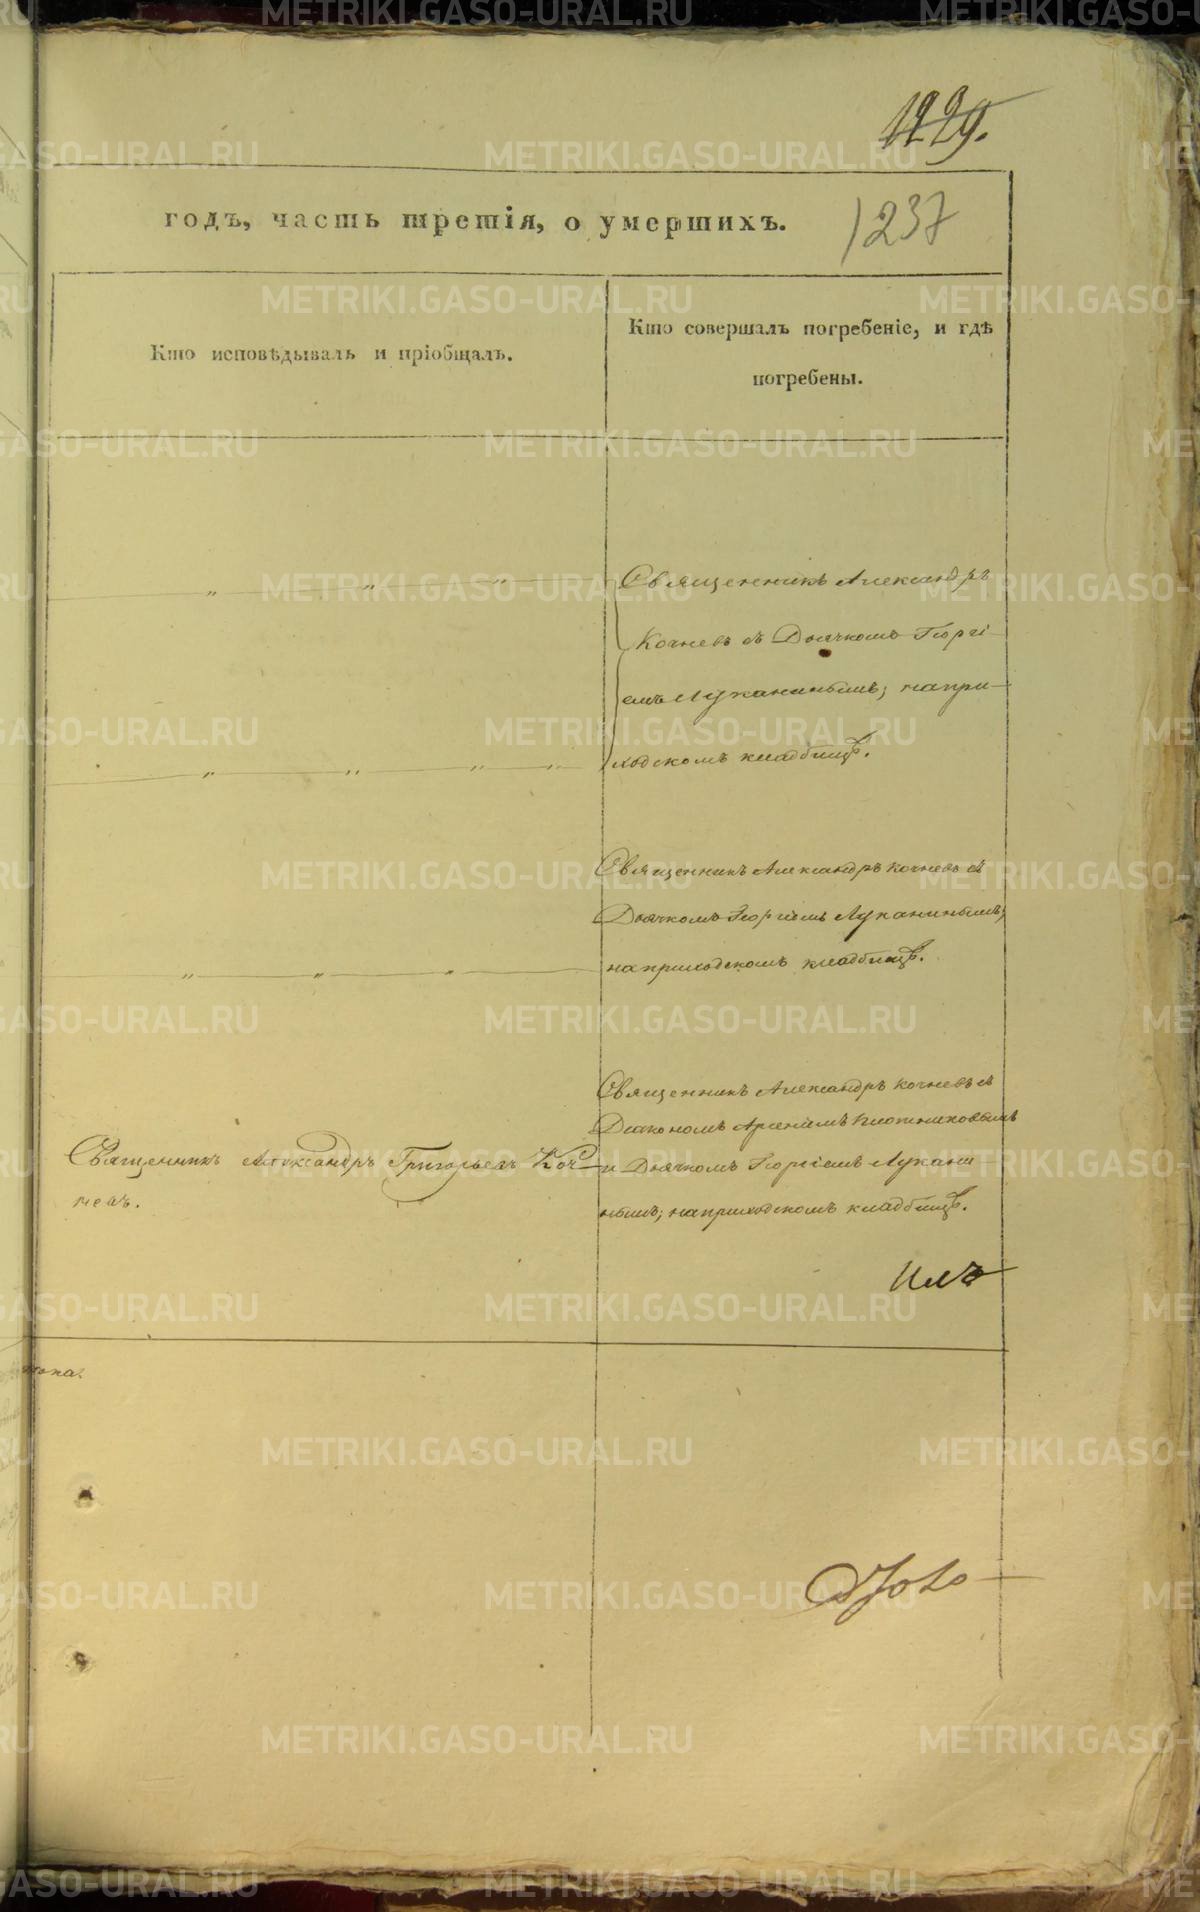 1229.
годъ, часть третія, о умершихъ.
1237
Кто исповѣдывалъ и пріобщалъ.
Кто совершалъ погребеніе, и гдѣ
погребены.
Священникъ Александръ
Кочневъ съ Дьячкомъ Георгі-
емъ Луканинымъ; напри-
ходскомъ кладбищѣ.
Священникъ Александръ Кочневъ съ
Дьячкомъ Георгіемъ Луканинымъ;
наприходскомъ кладбищѣ.
Священникъ Александръ Григорьевъ Коч-
невъ.
Священникъ Александръ Кочневъ съ
Діакономъ Арсеніемъ Плотниковымъ
и Дьячкомъ Георгіемъ Лукани-
нымъ; наприходскомъ кладбищѣ.
METRIKI.GASO-URAL.RU